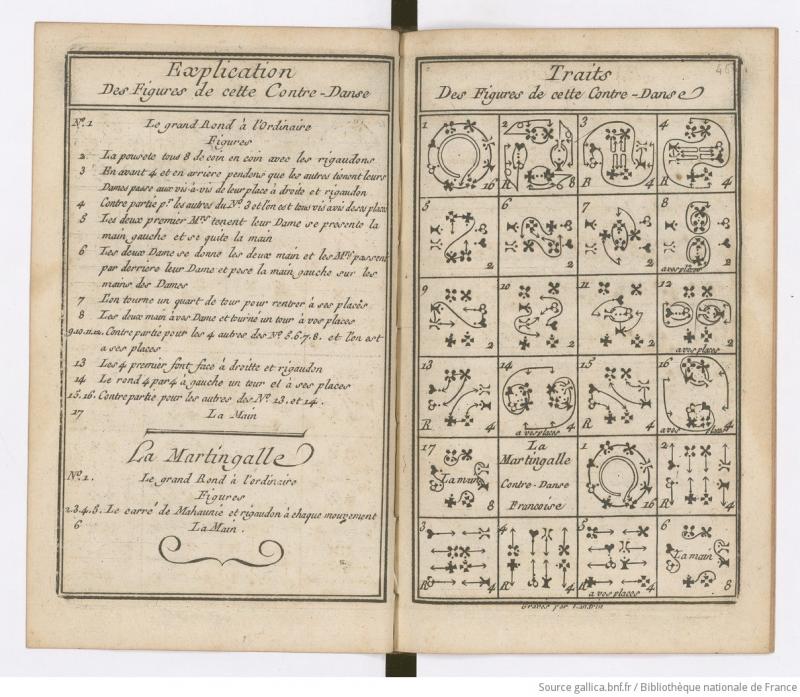 Explication
Des Figures de cette Contre-Danse
Nº. 1 Le grand Rond à l'Ordinaire
Figures
2. La pousete tous 8 de coin en coin avec les rigaudons
3 En avant 4 et en arriere pendens que les autres tenent leurs
Dames passe aux vis-à-vis de leur place à droite et rigaudon
4 Contre partie pr. les autres du Nº. 3 et l'on est tous vis avis de ses places
5 Les deux premier Mrs. tenent leur Dame se presente la
main gauche et se quite la main
6 Les deux Dame se donne les deux main et les Mrs. passent
par derriere leur Dame et pose la main gauche sur les
mains des Dames
7 L'on tourne un quart de tour pour rentrer à ses places
8 Les deux main à vos Dame et tourné un tour à vos places
9.10.11.12. Contre partie pour les 4 autres des Nº. 5.6.7.8. et l'on est
a ses places
13 Les 4 premier font face à droitte et rigaudon
14 Le rond 4 par 4 à gauche un tour et à ses places
15.16. Contre partie pour les autres des Nº. 13. et 14.
17 La Main
La Martingalle
Nº. 1. Le grand Rond à l'ordinaire
Figures
2.3.4.5. Le carré de Mahaunie et rigaudon à chaque mouvement
6 La Main.
Traits
46
Des Figures de cette Contre-Danse
1 16
2 R 8
3 R 4
4 R 4
5 2
6 2
7 2
8 a vos places 2
9 2
10 2
11 2
12 a vos places 2
13 R 4
14 a vos places 4
15 R 4
16 a vos places 4
17 La main 8
La
Martingalle
Contre-Danse
Francoise
1 16
2 R 4
3 R 4
4 R 4
5 R a vos places 4
6 La main 8
Gravés par Landrin
Source gallica.bnf.fr / Bibliothèque nationale de France